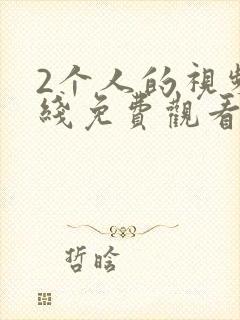 2个人的視频
綫免費觀看
哲晗